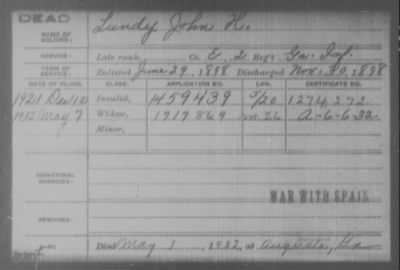 DEAD
NAME OF SOLDIER: Lundy John H.
SERVICE: Late rank, Co. E, 2 Reg't Ga. Inf.
TERM OF SERVICE: Enlisted June 29, 1898 Discharged Nov. 30, 1898
DATE OF FILING. CLASS. APPLICATION NO. LAW. CERTIFICATE NO.
1921 Dec 1 Invalid, 1459439 5/20 1274272
1932 May 7 Widow, 1717869 A-6-6-32
Minor,
ADDITIONAL SERVICES:
WAR WITH SPAIN
REMARKS:
Died May 1, 1932, at Augusta, Ga